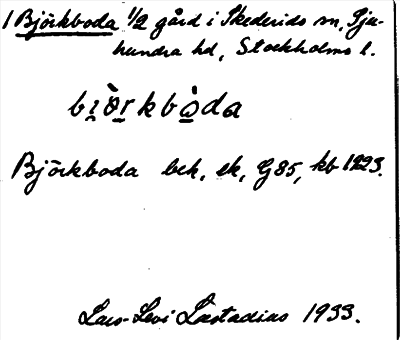 1 Björkboda 1/2 gård i Skederids sn, Sju-
hundra hd, Stockholms l.
bi̯ö̀rkbò̱da
Björkboda bek, ek, G85, kb 1223.
Lars-Levi Læstadius 1933.